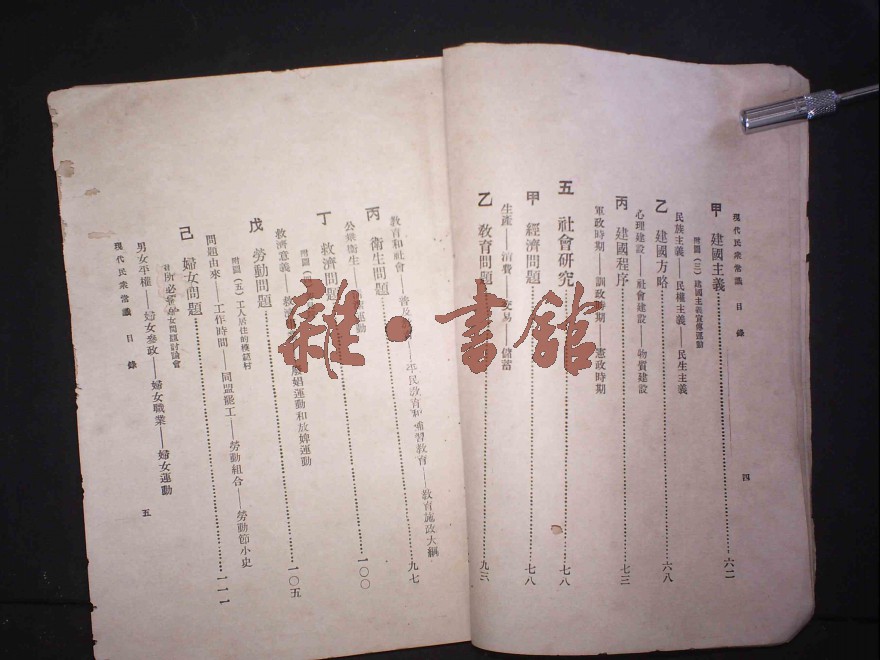 現代民衆常識 目錄
四
甲 建國主義 六二
附圖(三)建國主義宣傳運動
民族主義——民權主義——民生主義
乙 建國方略 六八
心理建設——社會建設——物質建設
丙 建國程序 七三
軍政時期——訓政時期——憲政時期
五 社會研究 七八
甲 經濟問題 七八
生產——消費——交易——儲蓄
乙 教育問題 九三
教育和社會——普及——平民教育和補習教育——教育施政大綱
丙 衞生問題 九七
公衆衞生——運動
丁 救濟問題 一〇〇
附圖
救濟意義——救濟——廢娼運動和放婢運動
戊 勞動問題 一〇五
附圖(五)工人居住的模範村
問題由來——工作時間——同盟罷工——勞動組合——勞動節小史
己 婦女問題 一一一
婦女問題討論會
男女平權——婦女參政——婦女職業——婦女運動
現代民衆常識 目錄
五
雜·書館